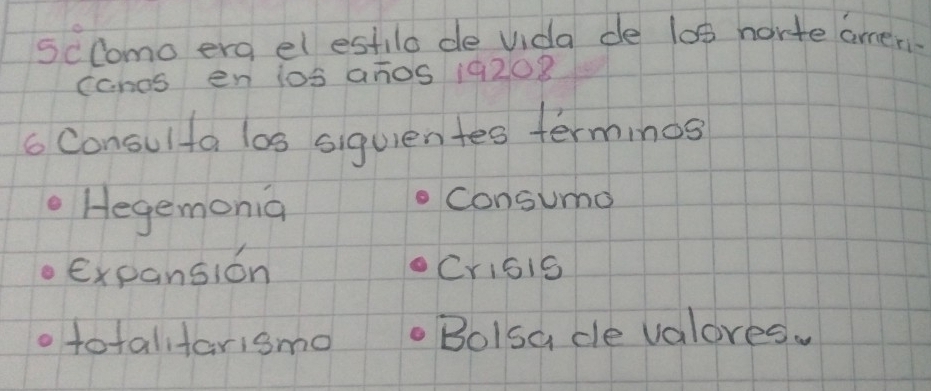 5¿Como era el estilo de vida de los norte ámeri-
canos en los años 1920?
6 Consulta los siguientes términos
• Hegemonía • Consumo
• Expansión • Crisis
• totalitarismo • Bolsa de valores.